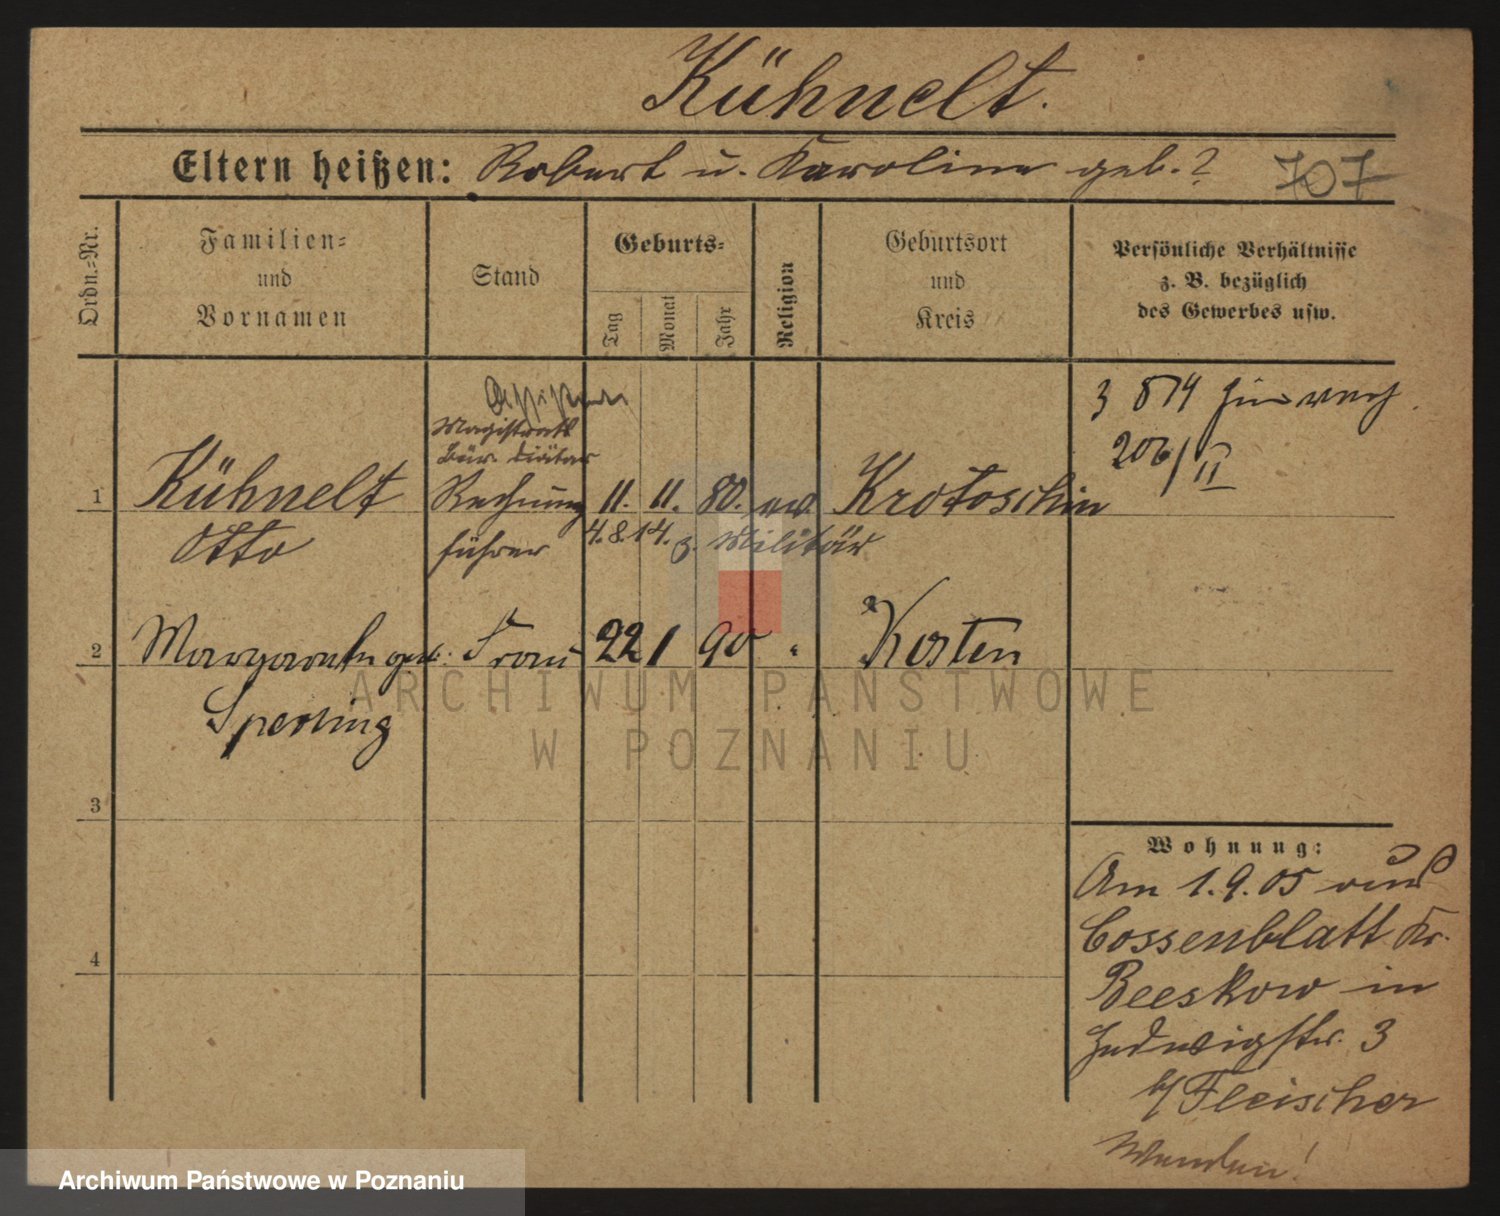 Kühnelt.
Eltern heißen: Robert u. Karoline geb. ? 707
Ordn.-Nr.
Familien-
und
Vornamen
Stand
Geburts-
Tag
Monat
Jahr
Religion
Geburtsort
und
Kreis
Persönliche Verhältnisse
z. B. bezüglich
des Gewerbes usw.
Assistent
Magistrats
Bür. Diätar
1 Kühnelt Rechnungs 11. 11. 80. ev. Krotoschin
Otto führer 4.8.14. z. Militär
3 814
206/II
2 Margarete geb. Frau 22 1 90 " Kosten
Sperling
3
4
Wohnung:
Am 1.9.05 aus
Cossenblatt Kr.
Beeskow in
Hedwigstr. 3
b/ Fleischer
Wenden!
ARCHIWUM PAŃSTWOWE
W POZNANIU
Archiwum Państwowe w Poznaniu